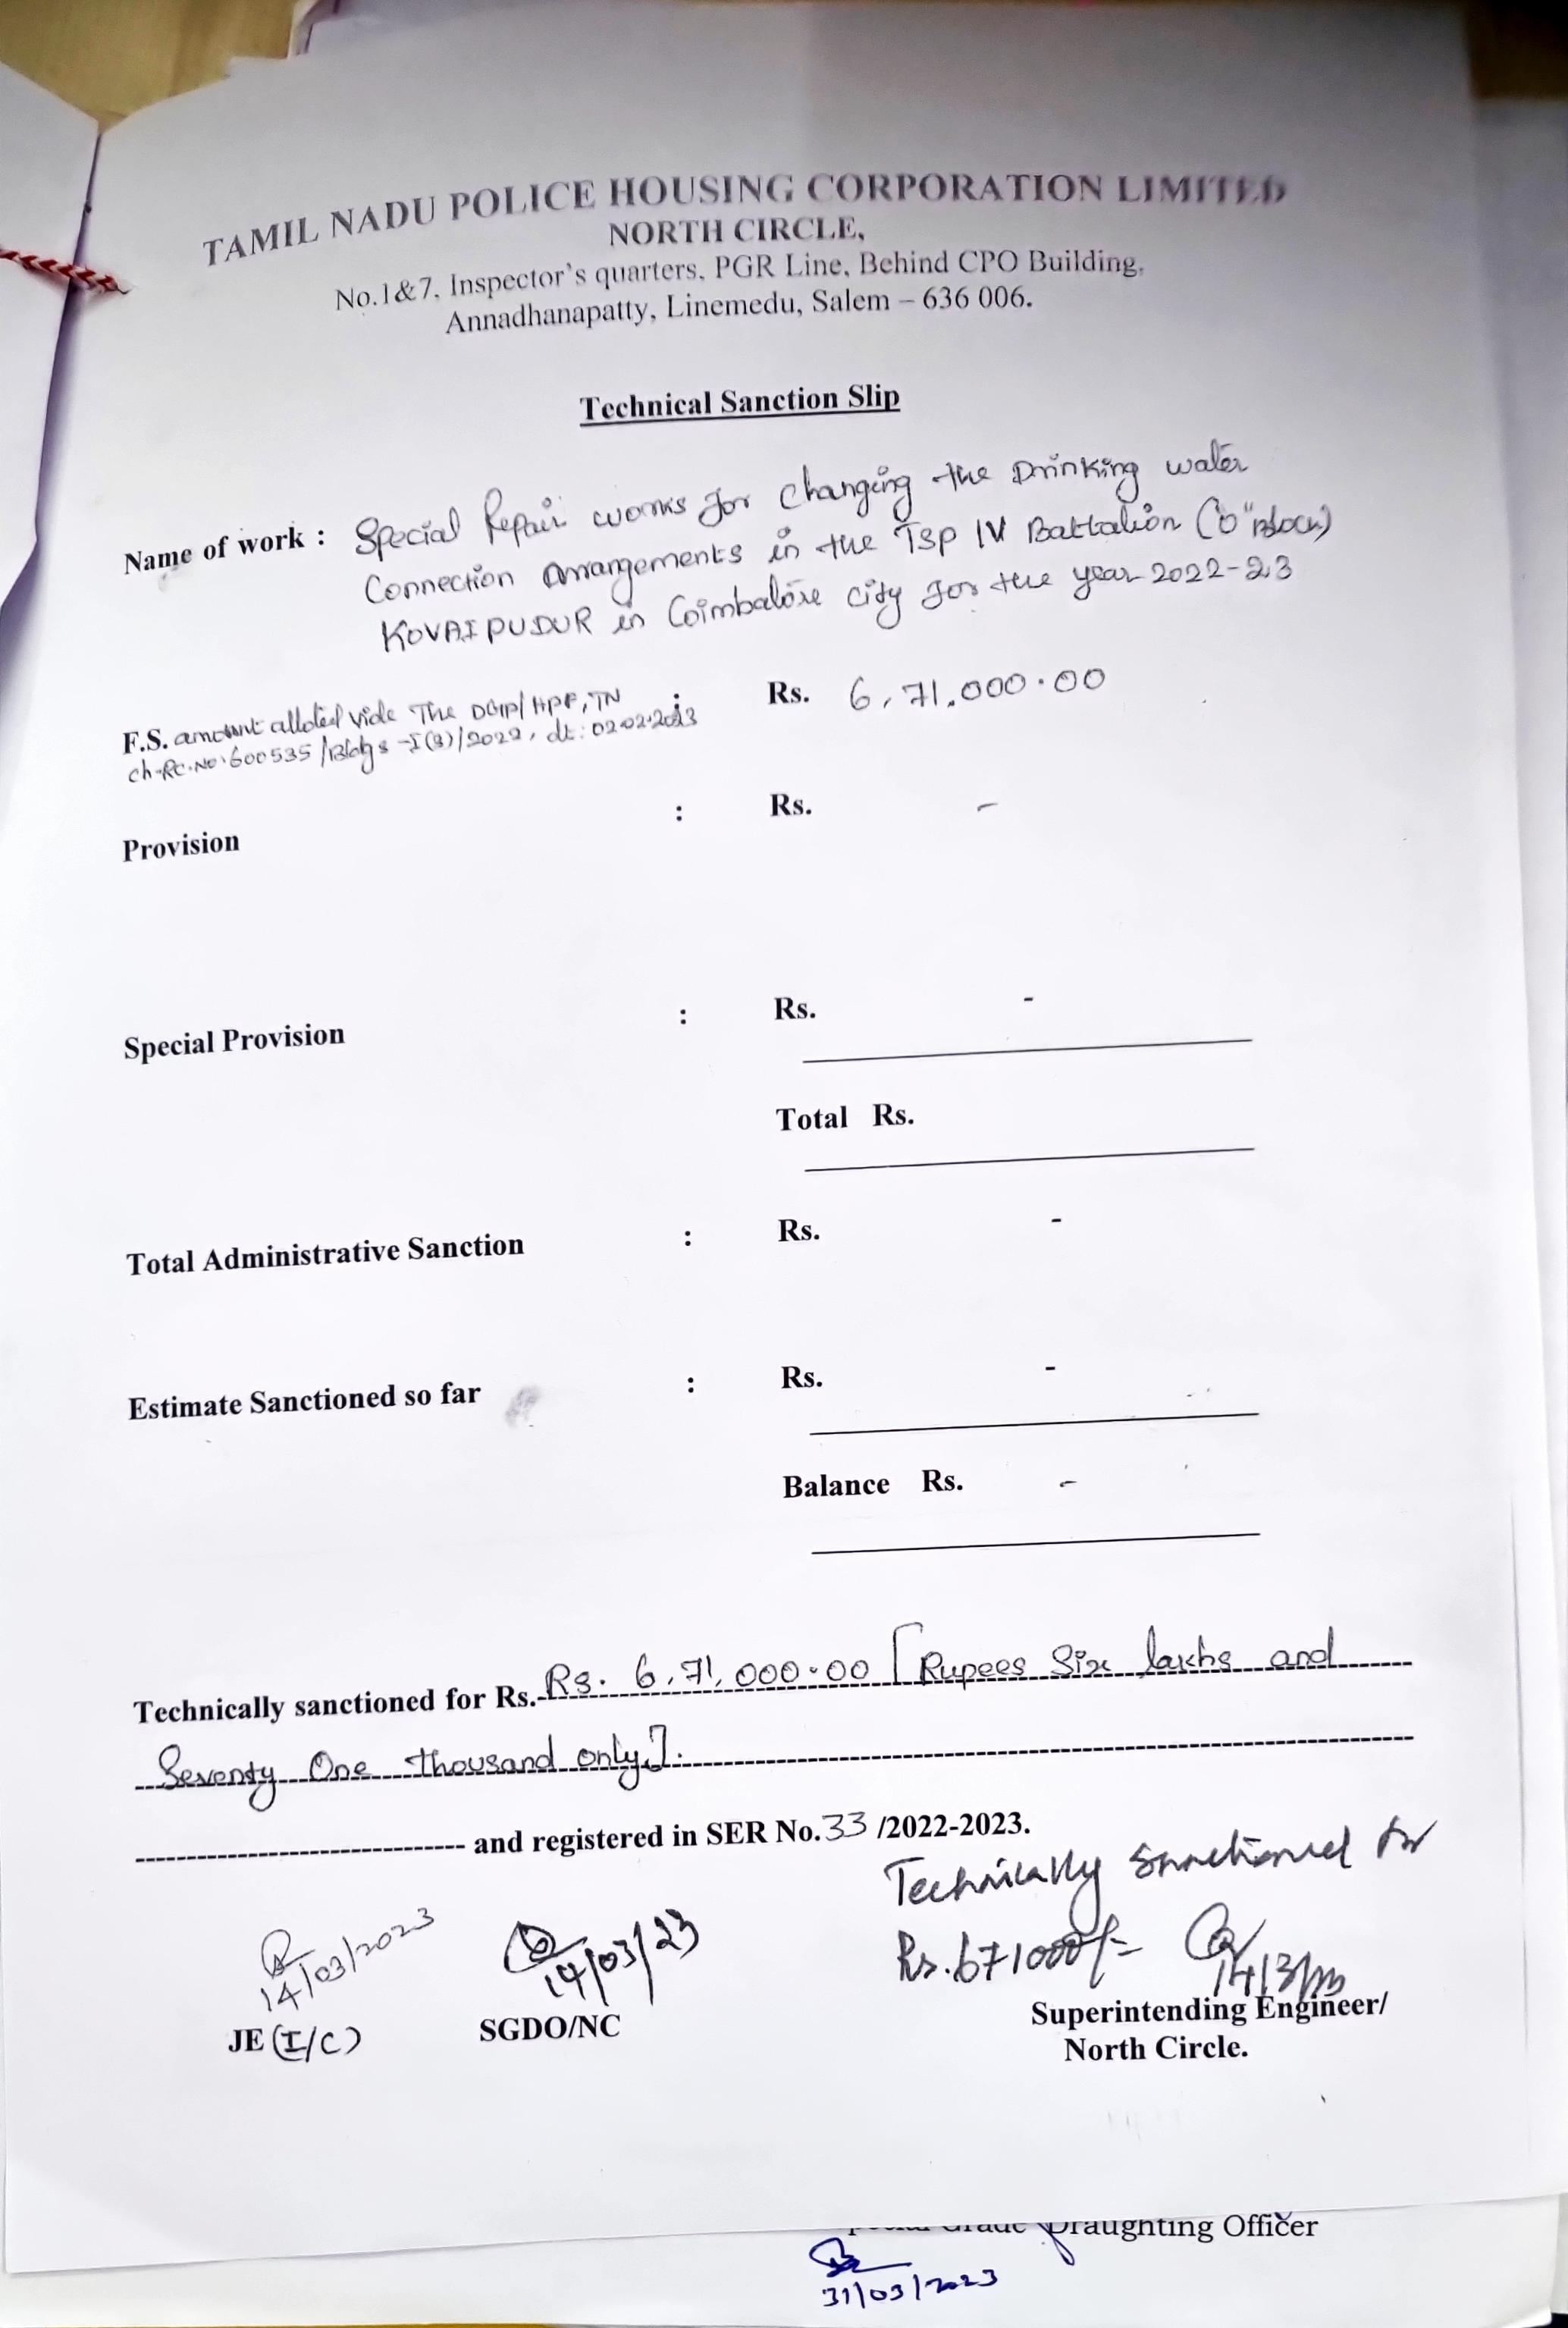 TAMIL NADU POLICE HOUSING CORPORATION LIMITED
NORTH CIRCLE,
No.1&7, Inspector's quarters, PGR Line, Behind CPO Building,
Annadhanapatty, Linemedu, Salem – 636 006.
Technical Sanction Slip
Name of work : Special Repair works for changing the Drinking water
Connection Arrangements in the TSP IV Battalion ("O" Block)
KOVAIPUDUR in Coimbatore city for the year 2022-23
F.S. amount alloted vide The DGP/HPF, TN : Rs. 6,71,000.00
ch-RC.No.600535/Bldgs-I(3)/2022, dt: 02.02.2023
Provision : Rs. -
Special Provision : Rs. -
Total Rs.
Total Administrative Sanction : Rs. -
Estimate Sanctioned so far : Rs. -
Balance Rs. -
Technically sanctioned for Rs. Rs. 6,71,000.00 [Rupees Six lakhs and
Seventy One thousand only].
and registered in SER No. 33 /2022-2023.
Technically sanctioned for
Rs. 671000/=
14/03/2023 14/03/23 14/3/23
JE (I/C) SGDO/NC Superintending Engineer/
North Circle.
Grade Draughting Officer
31/03/2023